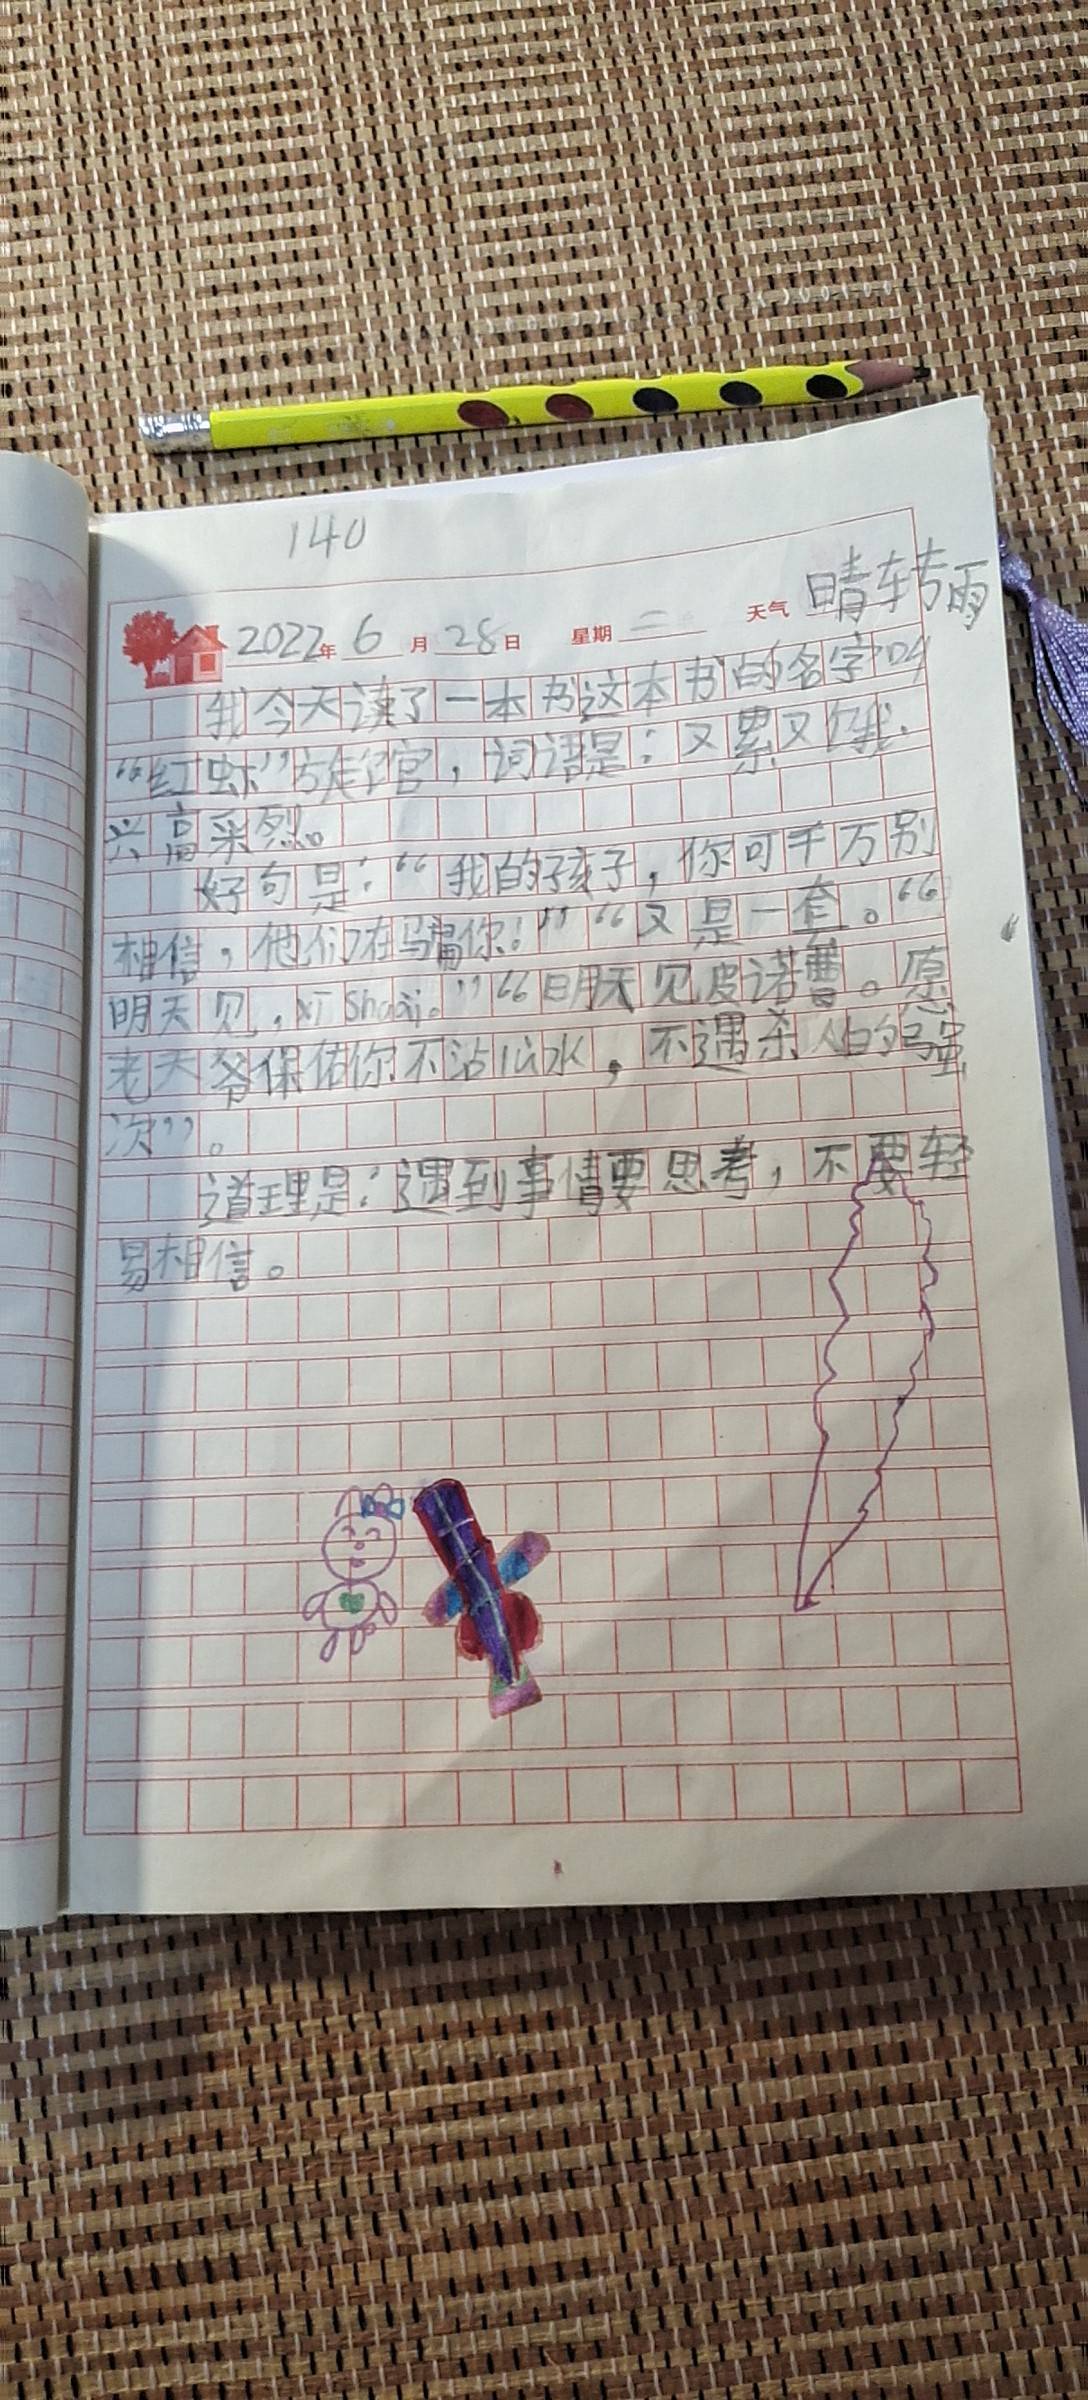 140
2022年 6 月 28 日 星期 二 天气 晴转雨
我今天读了一本书这本书的名字叫
“红虾”旅馆，词语是：又累又饿.
兴高采烈。
好句是：“我的孩子，你可千万别
相信，他们在骗你！”“又是一套。“
明天见，  。”“明天见皮诺曹。愿
老天爷保佑你不沾 水，不遇杀人的强
次”。
道理是：遇到事情要思考，不要轻
易相信。